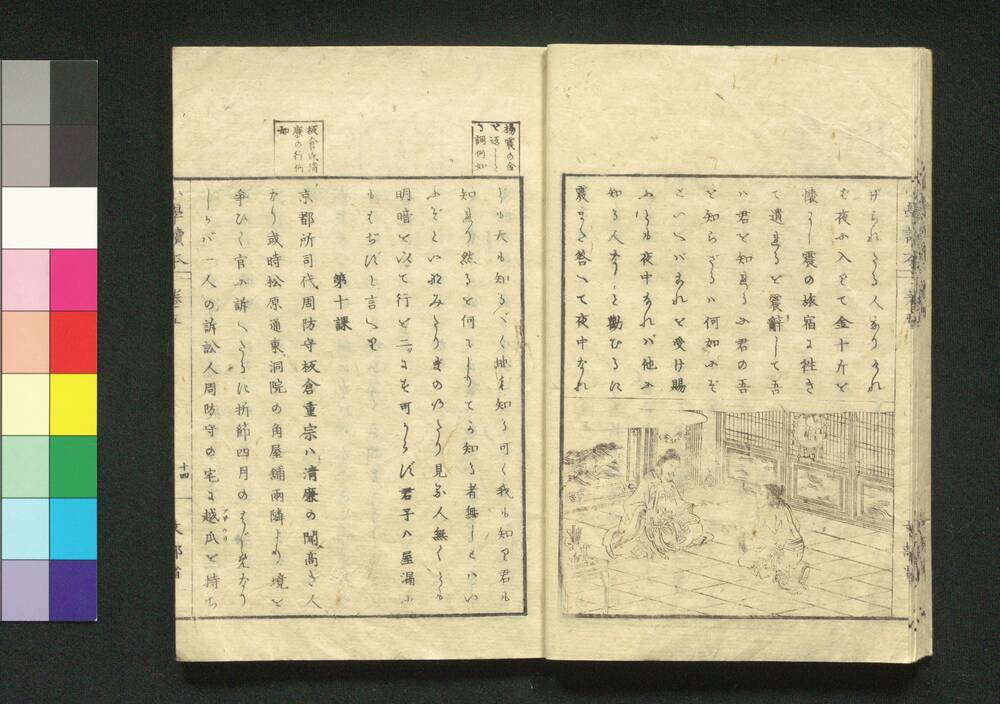 げられたる人ありけれ
ば夜に入りて金十斤を
懐にし震の旅宿に往き
て遺りけると震辭して吾
ハ君を知ける尓君の吾
を知らざるハ何如ふぞ
といへバこれを受け賜
ふとも夜中なれバ他ふ
知る人なしと勸むるに
震また答へて夜中なれ
楊震の金
を返しゝ
る詞何如
とも天も知るべく地も知る可く我も知り君も
知れり然るを何にしてか知る者無しとハい
ふぞといなみたり
見る人無くとも
明暗を以て行を二にす可からず君子ハ屋漏ふ
もはぢずと言へり
第十課
板倉氏清
廉の行何
如
京都所司代周防守板倉重宗ハ清廉の聞高き人
なり或時松原通東洞院の角屋鋪兩隣より境を
爭ひて官に訴へたるに折節四月のはじめなり
しかバ一人の訴訟人周防守の宅に越瓜を持ち
小學讀本
巻之五
十四
文部省